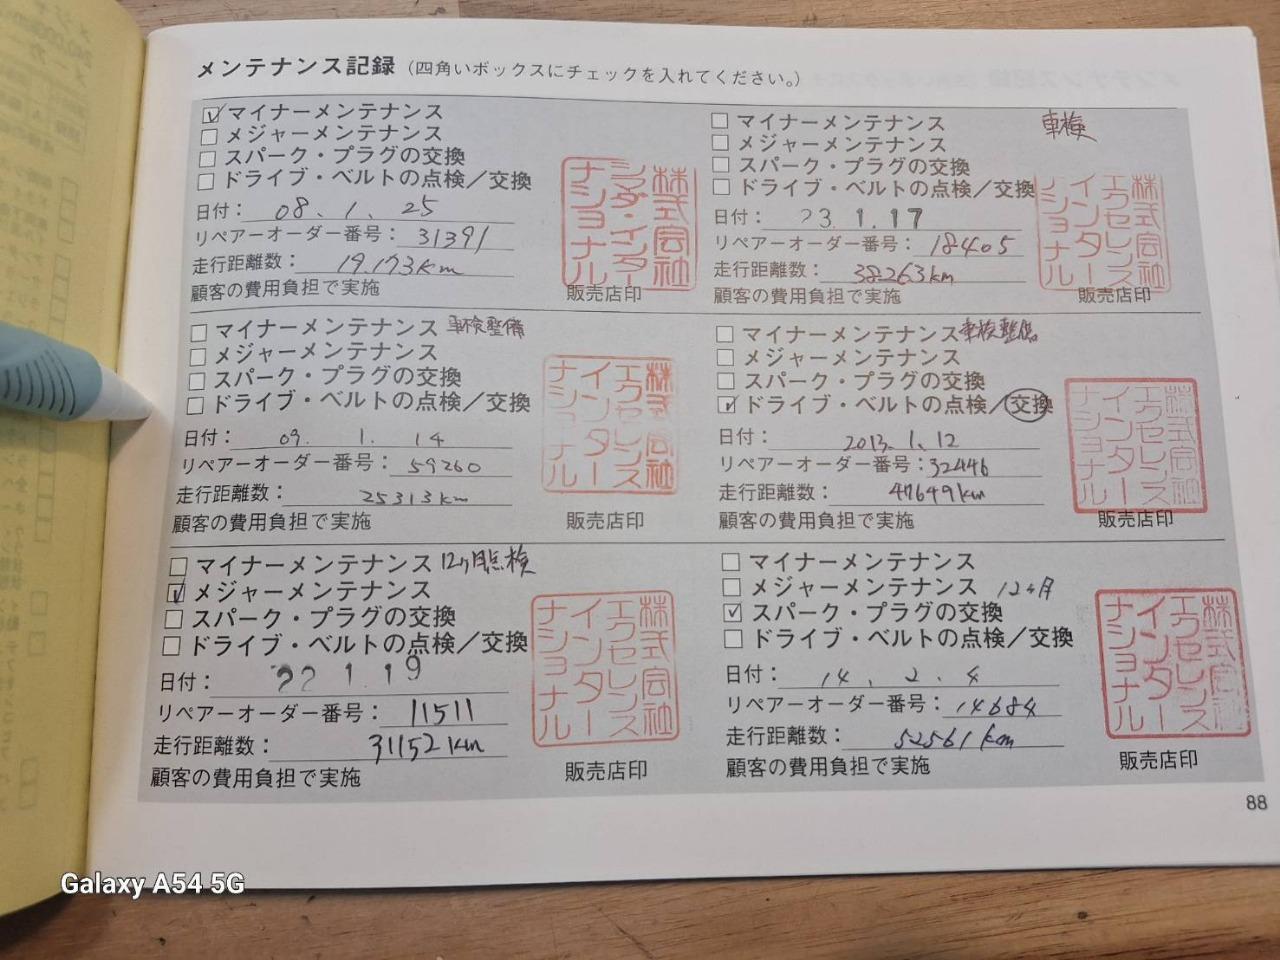 メンテナンス記録（四角いボックスにチェックを入れてください。）
マイナーメンテナンス
メジャーメンテナンス
スパーク・プラグの交換
ドライブ・ベルトの点検／交換
日付： 08. 1. 25
リペアーオーダー番号： 31391
走行距離数： 19.173km
顧客の費用負担で実施
株式会社シマダ・インターナショナル
販売店印
マイナーメンテナンス 車検整備
メジャーメンテナンス
スパーク・プラグの交換
ドライブ・ベルトの点検／交換
日付： 09. 1. 14
リペアーオーダー番号： 59260
走行距離数： 25313km
顧客の費用負担で実施
株式会社エクセレンスインターナショナル
販売店印
マイナーメンテナンス 12ヶ月点検
メジャーメンテナンス
スパーク・プラグの交換
ドライブ・ベルトの点検／交換
日付： 22 1. 19
リペアーオーダー番号： 11511
走行距離数： 31152km
顧客の費用負担で実施
株式会社エクセレンスインターナショナル
販売店印
マイナーメンテナンス 車検
メジャーメンテナンス
スパーク・プラグの交換
ドライブ・ベルトの点検／交換
日付： 23. 1. 17
リペアーオーダー番号： 18405
走行距離数： 38263km
顧客の費用負担で実施
株式会社エクセレンスインターナショナル
販売店印
マイナーメンテナンス 車検整備
メジャーメンテナンス
スパーク・プラグの交換
ドライブ・ベルトの点検／交換
日付： 2013. 1. 12
リペアーオーダー番号： 32446
走行距離数： 47649km
顧客の費用負担で実施
株式会社エクセレンスインターナショナル
販売店印
マイナーメンテナンス
メジャーメンテナンス 12ヶ月
スパーク・プラグの交換
ドライブ・ベルトの点検／交換
日付： 14. 2. 4
リペアーオーダー番号： 14684
走行距離数： 52561km
顧客の費用負担で実施
株式会社エクセレンスインターナショナル
販売店印
88
Galaxy A54 5G